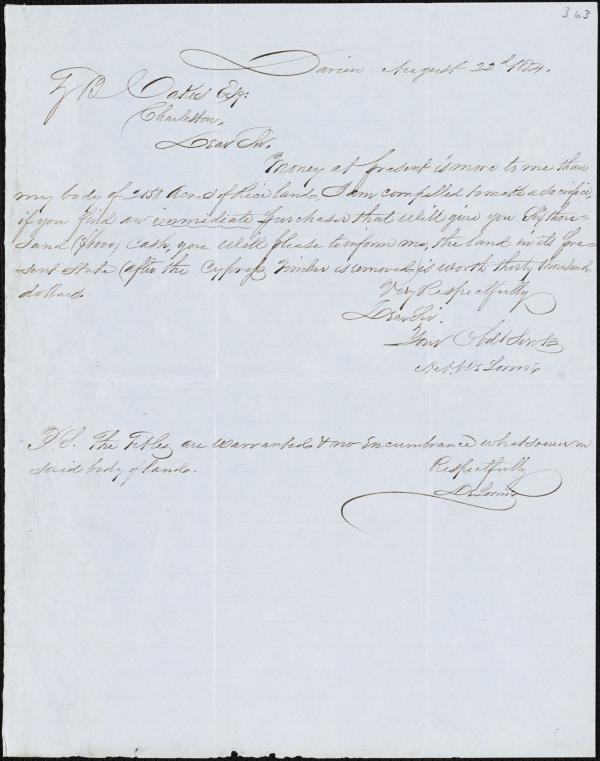 363
Darien August 22d 1854.
Z B Oakes Esq:
Charleston,
Dear Sir,
Money at present is more to me than
my body of 2150 Acres of Rice land, I am compelled to make a sacrifice,
if you find an immediate purchaser that will give you Six thou-
sand ($6000) Cash, you will please to inform me, the land in its pre-
sent state (after the Cypress timber is removed is worth thirty thousand
dollars.
Very Respectfully
Dear Sir,
Your Obdt Servt
P.S. The Titles are warranted & no Encumbrance whatsoever on
said body of land.
Respectfully